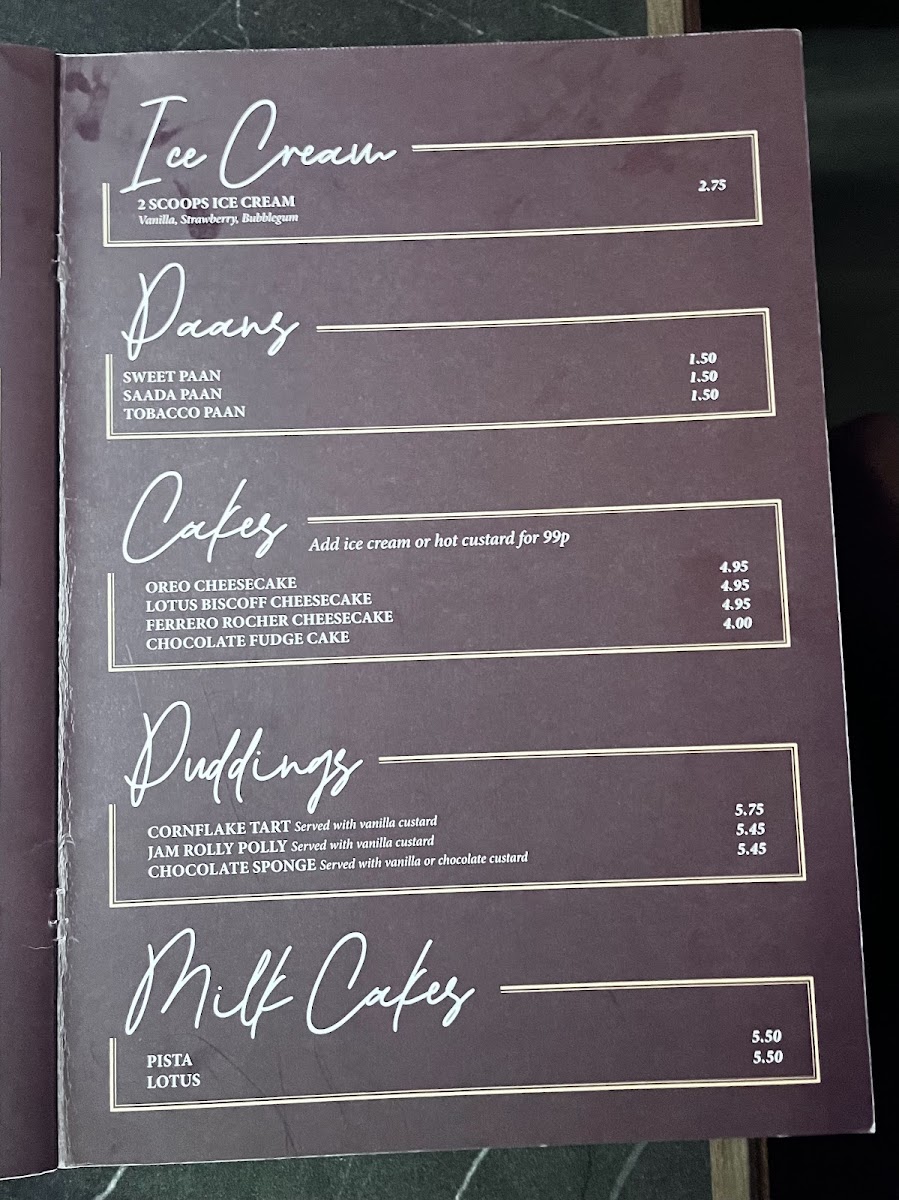 Ice Cream
2 SCOOPS ICE CREAM 2.75
Vanilla, Strawberry, Bubblegum
Paans
SWEET PAAN 1.50
SAADA PAAN 1.50
TOBACCO PAAN 1.50
Cakes
Add ice cream or hot custard for 99p
OREO CHEESECAKE 4.95
LOTUS BISCOFF CHEESECAKE 4.95
FERRERO ROCHER CHEESECAKE 4.95
CHOCOLATE FUDGE CAKE 4.00
Puddings
CORNFLAKE TART Served with vanilla custard 5.75
JAM ROLLY POLLY Served with vanilla custard 5.45
CHOCOLATE SPONGE Served with vanilla or chocolate custard 5.45
Milk Cakes
PISTA 5.50
LOTUS 5.50